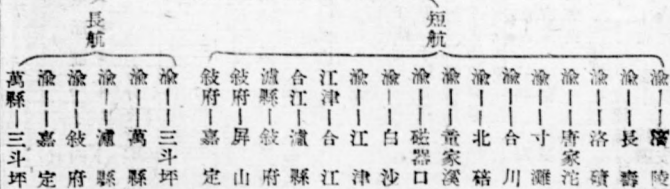 短航
渝—長壽
渝—洛磧
渝—唐家沱
渝—寸灘
渝—合川
渝—北碚
渝—童家溪
渝—磁器口
渝—白沙
渝—江津
江津—合江
合江—瀘縣
瀘縣—敍府
敍府—屏山
敍府—嘉定
長航
渝—三斗坪
渝—萬縣
渝—瀘縣
渝—敍府
渝—嘉定
萬縣—三斗坪